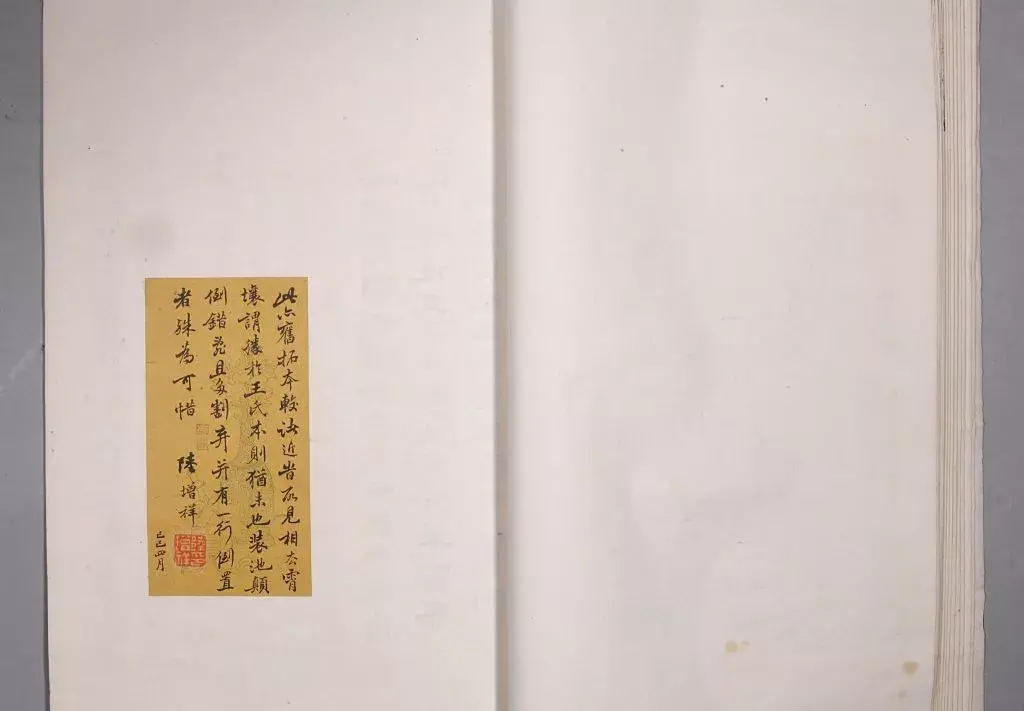 此亦舊拓本較諸近昔所見相去霄
壤謂勝於王氏本則猶未也裝池顛
倒錯亂且多割弃并有一行倒置
者殊為可惜
陸增祥
己巳四月